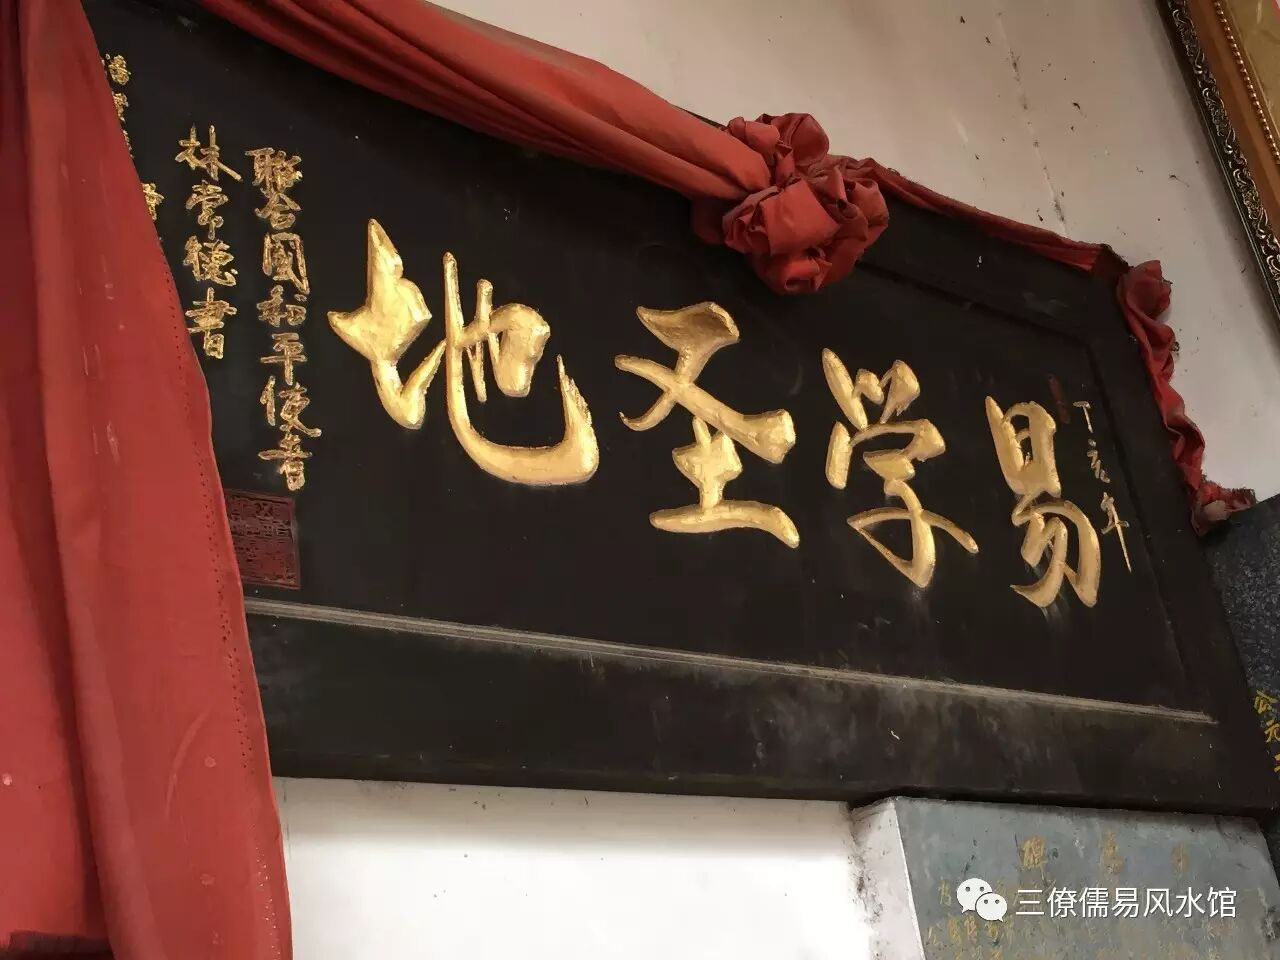 丁亥年
易学圣地
聯合國和平使者
林常德書
三僚儒易风水馆